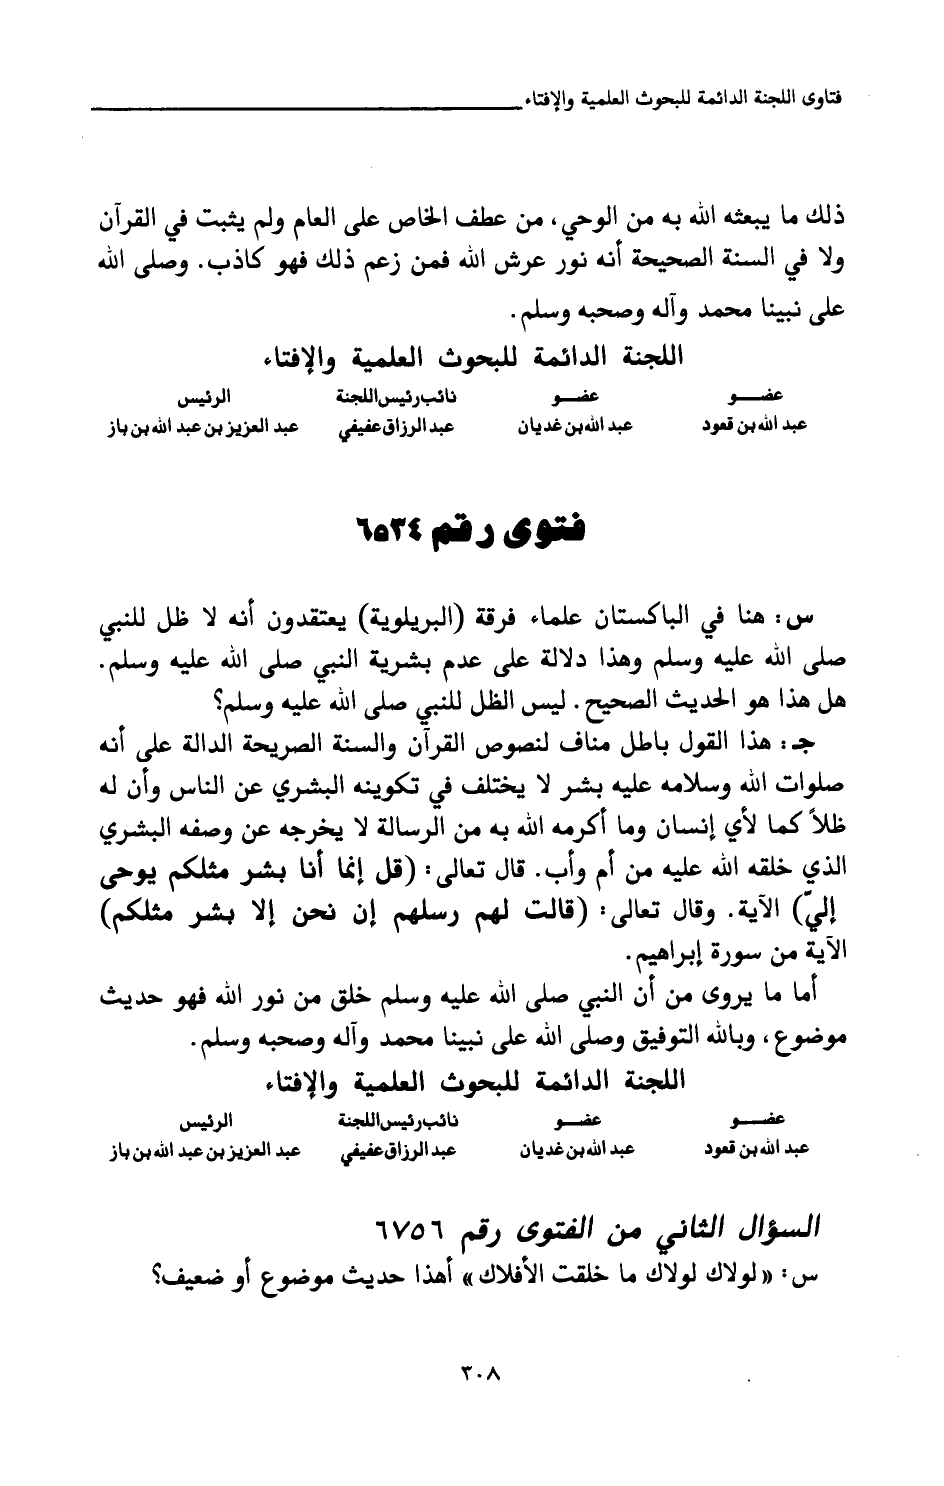 فتاوى اللجنة الدائمة للبحوث العلمية والإفتاء
ذلك ما يبعثه الله به من الوحي، من عطف الخاص على العام ولم يثبت في القرآن
ولا في السنة الصحيحة أنه نور عرش الله فمن زعم ذلك فهو كاذب. وصلى الله
على نبينا محمد وآله وصحبه وسلم.
اللجنة الدائمة للبحوث العلمية والإفتاء
عضــــو عضــــو نائب رئيس اللجنة الرئيس
عبد الله بن قعود عبد الله بن غديان عبد الرزاق عفيفي عبد العزيز بن عبد الله بن باز
فتوى رقم ٦٥٣٤
س: هنا في الباكستان علماء فرقة (البريلوية) يعتقدون أنه لا ظل للنبي
صلى الله عليه وسلم وهذا دلالة على عدم بشرية النبي صلى الله عليه وسلم.
هل هذا هو الحديث الصحيح. ليس الظل للنبي صلى الله عليه وسلم؟
جـ: هذا القول باطل مناف لنصوص القرآن والسنة الصريحة الدالة على أنه
صلوات الله وسلامه عليه بشر لا يختلف في تكوينه البشري عن الناس وأن له
ظلاً كما لأي إنسان وما أكرمه الله به من الرسالة لا يخرجه عن وصفه البشري
الذي خلقه الله عليه من أم وأب. قال تعالى: (قل إنما أنا بشر مثلكم يوحى
إليّ) الآية. وقال تعالى: (قالت لهم رسلهم إن نحن إلا بشر مثلكم)
الآية من سورة إبراهيم.
أما ما يروى من أن النبي صلى الله عليه وسلم خلق من نور الله فهو حديث
موضوع، وبالله التوفيق وصلى الله على نبينا محمد وآله وصحبه وسلم.
اللجنة الدائمة للبحوث العلمية والإفتاء
عضــــو عضــــو نائب رئيس اللجنة الرئيس
عبد الله بن قعود عبد الله بن غديان عبد الرزاق عفيفي عبد العزيز بن عبد الله بن باز
السؤال الثاني من الفتوى رقم ٦٧٥٦
س: «لولاك لولاك ما خلقت الأفلاك» أهذا حديث موضوع أو ضعيف؟
٣٠٨